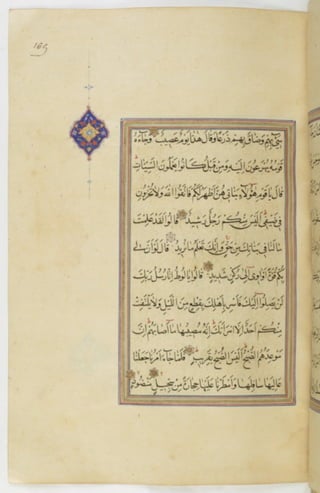 169
سِيءَ بِهِمْ وَضَاقَ بِهِمْ ذَرْعًا وَقَالَ هَذَا يَوْمٌ عَصِيبٌ وَجَاءَهُ
قَوْمُهُ يُهْرَعُونَ إِلَيْهِ وَمِنْ قَبْلُ كَانُوا يَعْمَلُونَ السَّيِّئَاتِ
قَالَ يَا قَوْمِ هَؤُلَاءِ بَنَاتِي هُنَّ أَطْهَرُ لَكُمْ فَاتَّقُوا اللَّهَ وَلَا تُخْزُونِ
فِي ضَيْفِي أَلَيْسَ مِنْكُمْ رَجُلٌ رَشِيدٌ قَالُوا لَقَدْ عَلِمْتَ
مَا لَنَا فِي بَنَاتِكَ مِنْ حَقٍّ وَإِنَّكَ لَتَعْلَمُ مَا نُرِيدُ قَالَ لَوْ أَنَّ لِي
بِكُمْ قُوَّةً أَوْ آوِي إِلَى رُكْنٍ شَدِيدٍ قَالُوا يَا لُوطُ إِنَّا رُسُلُ رَبِّكَ
لَنْ يَصِلُوا إِلَيْكَ فَأَسْرِ بِأَهْلِكَ بِقِطْعٍ مِنَ اللَّيْلِ وَلَا يَلْتَفِتْ
مِنْكُمْ أَحَدٌ إِلَّا امْرَأَتَكَ إِنَّهُ مُصِيبُهَا مَا أَصَابَهُمْ إِنَّ
مَوْعِدَهُمُ الصُّبْحُ أَلَيْسَ الصُّبْحُ بِقَرِيبٍ فَلَمَّا جَاءَ أَمْرُنَا جَعَلْنَا
عَالِيَهَا سَافِلَهَا وَأَمْطَرْنَا عَلَيْهَا حِجَارَةً مِنْ سِجِّيلٍ مَنْضُودٍ